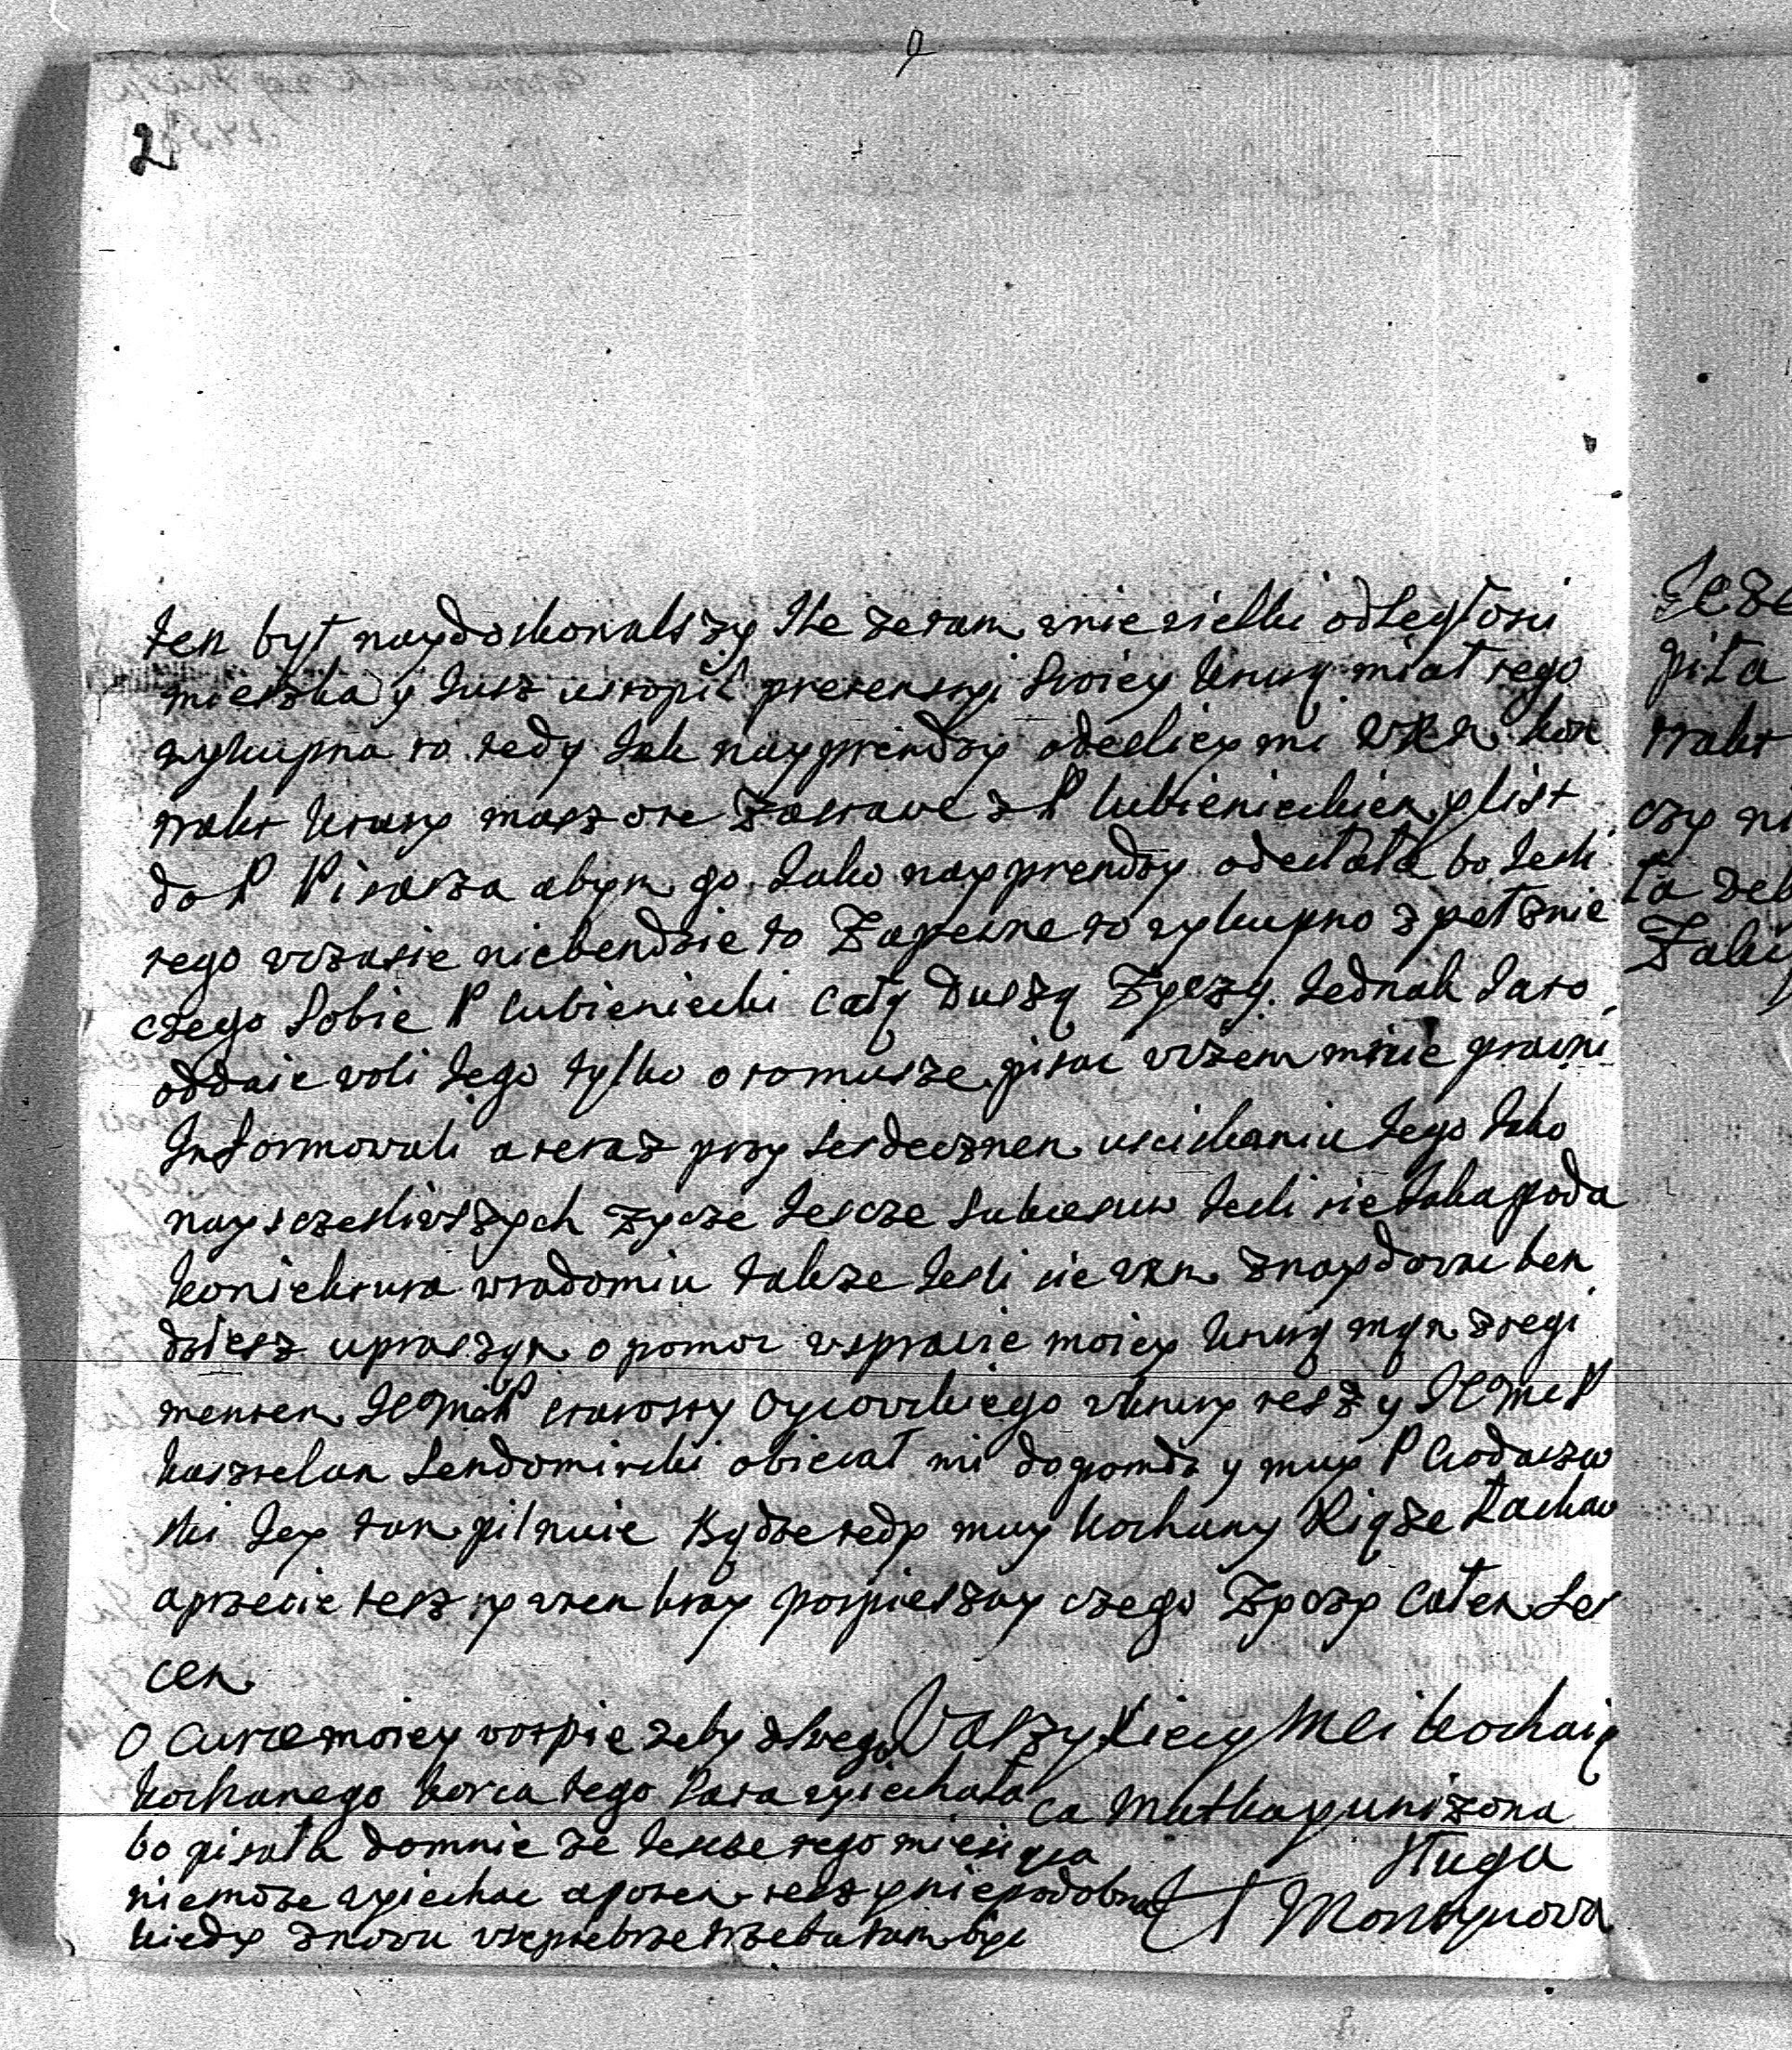 2
ten był naydoskonalszy Ile ze tam w niewielki odległosci
mieszka y Jusz ustopił pretensyi swoiey Unuq miał tego
wykupna to tedy Jak nayprendzy odesliey mi WKM kon
trakt ktury masz ote Zastawe z P Lubienieckiem y list
do P Pisarza abym go Jako nayprendzy odesłała bo Jesli
tego wczasie niebendzie to Zapewne to wykupno spełznie
czego sobie P Lubieniecki całą Duszą Zyczy. Jednak Ja to
oddaie woli Jego tylko o to musze pisac w czem mnie prawni
Informowali a teraz przy serdecznem usciskaniu Jego Jako
naysczesliwszych zycze Jescze sukcesuw Jesli sie Jaka poda
koniektura w radomiu takze Jesli sie WKM znaydowac ben
dziesz upraszam o pomoc w sprawie moiey Unuq mam z regi
mentem JCMci P starosty Oycowskiego w ktury tesz y JCMci P
kasztelan Sendomirski obiecał mi dopomodz y muy P
ski Jey tam pilnuie Bądze tedy muy kochany Xiąze łaskaw
a przecie tesz y w ten kray pospieszay czego Zyczy całem ser
cem
O curce moiey wospie zeby z swego
kochanego korca tego lata wyiechała
bo pisała do mnie ze Jescze tego miesiąca
niemoze wyiechac a potem tesz y niepodobna
kiedy znowu we wrzebrze trzeba tam byc
Waszy Xiecy Mci kochaią
ca Matka y unizona
sługa
Morsztynowa
Jeze
piła
trakt
czy ni
ła zeb